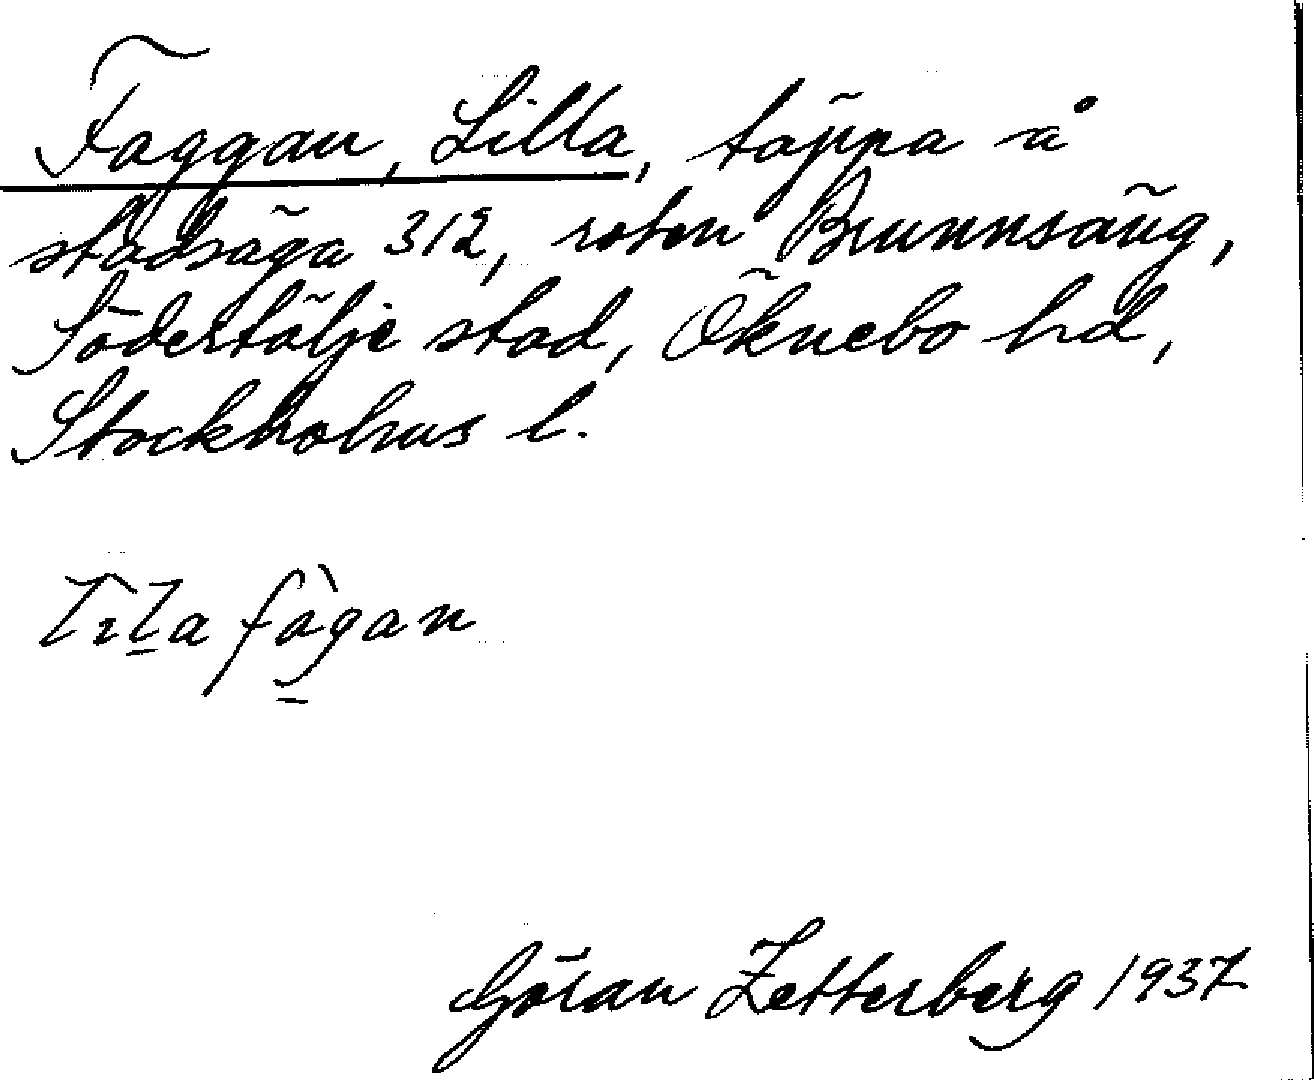 Faggan, Lilla, täppa å
stadsäga 312, roten Brunnsäng,
Södertälje stad, Öknebo hd,
Stockholms l.
lìla fàgan
Göran Zetterberg 1937